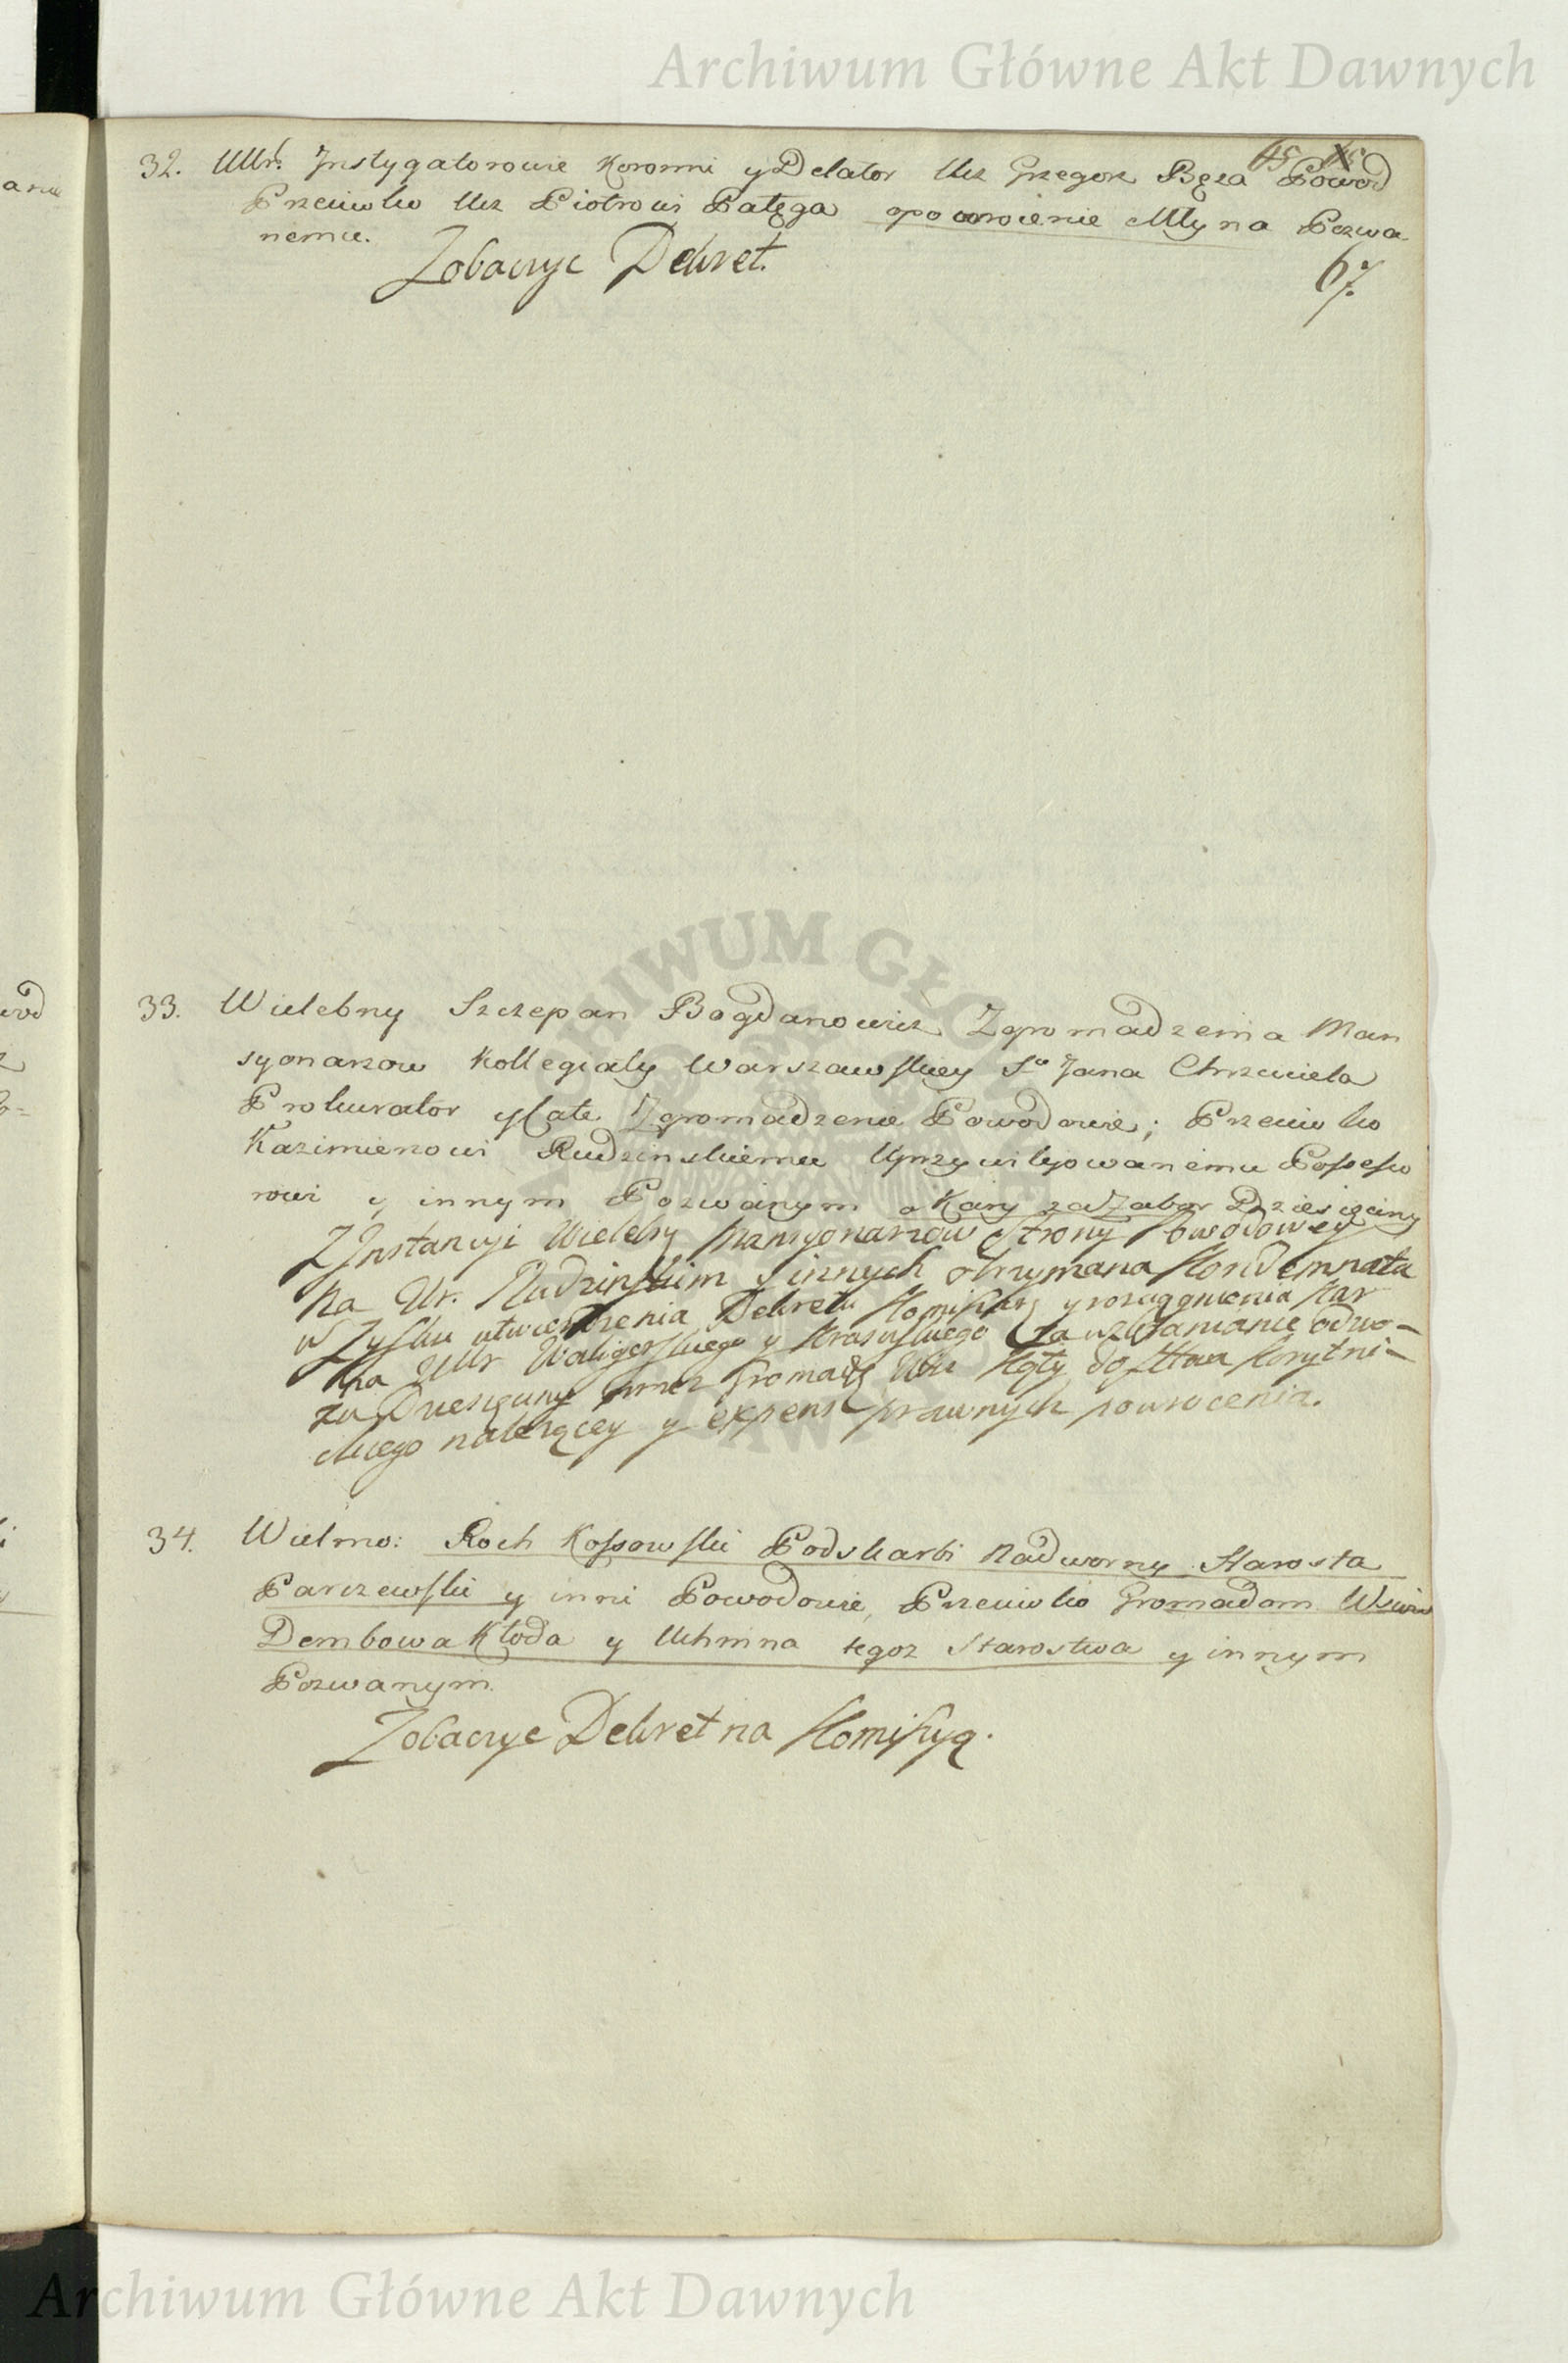 Archiwum Główne Akt Dawnych
65
32. UUr. Instygatorowie Koronni y Delator Ucz Grzegorz Bęza Powod
Przeciwko Ucz Piotrowi Patęga o powrocenie Młyna Pozwa
nemu.
Zobaczyc Dekret.
67.
33. Wielebny Szczepan Bogdanowicz Zgromadzenia Man
syonarzow Kollegiaty Warszawskiey Sgo Jana Chrzciciela
Prokurator y Całe Zgromadzenie Powodowie; Przeciwko
Kazimierzowi Rudzinskiemu Uprzywilejowanemu Possesso
rowi y innym Pozwanym o Kary za Zabor Dziesięciny
Z Instancyi Wielebny Mansyonarzow Strony Powodowey
Na Ur. Rudzinskim y innych otrzymana Kondemnata
w Zysku utwierdzenia Dekretu Komissarz y rosciągnienia Kar
na UUr Waligorskiego y Krasuskiego za wzbranianie odwo-
zu Dziesięciny przez Gromadę Wsi Kąty do Stwa Korytni-
ckiego należącey y expens prawnych powrocenia.
34. Wielmo: Roch Kossowski Podskarbi Nadworny Starosta
Parczewski y inni Powodowie, Przeciwko Gromadom Wsiow
Dembowa Kłoda y Uhnina tegoz Starostwa y innym
Pozwanym.
Zobaczyc Dekret na Komissyą.
Archiwum Główne Akt Dawnych